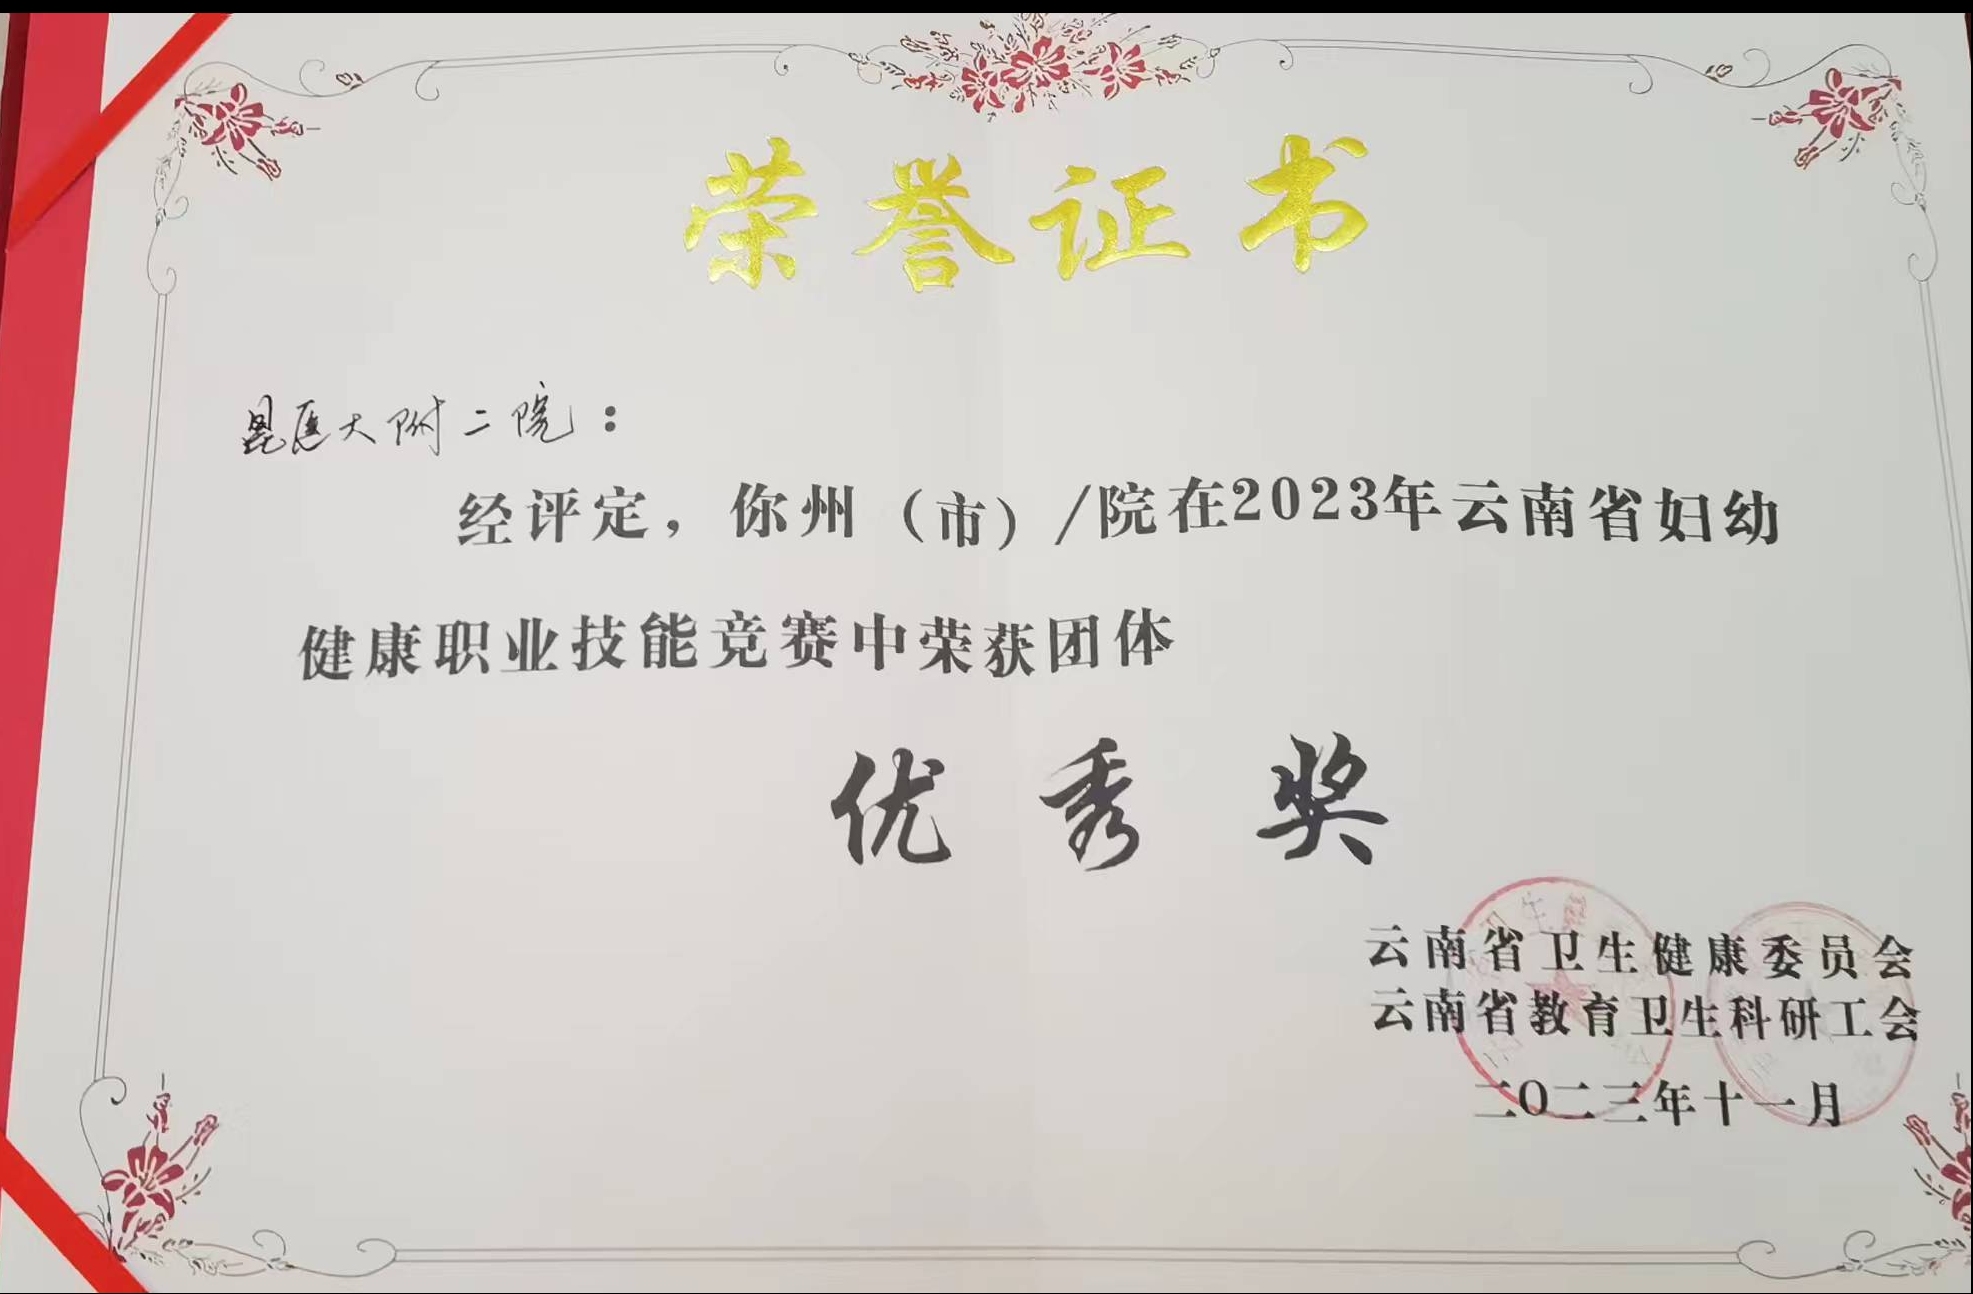 荣誉证书
昆医大附二院：
经评定，你州（市）/院在2023年云南省妇幼
健康职业技能竞赛中荣获团体
优秀奖
云南省卫生健康委员会
云南省教育卫生科研工会
二〇二三年十一月